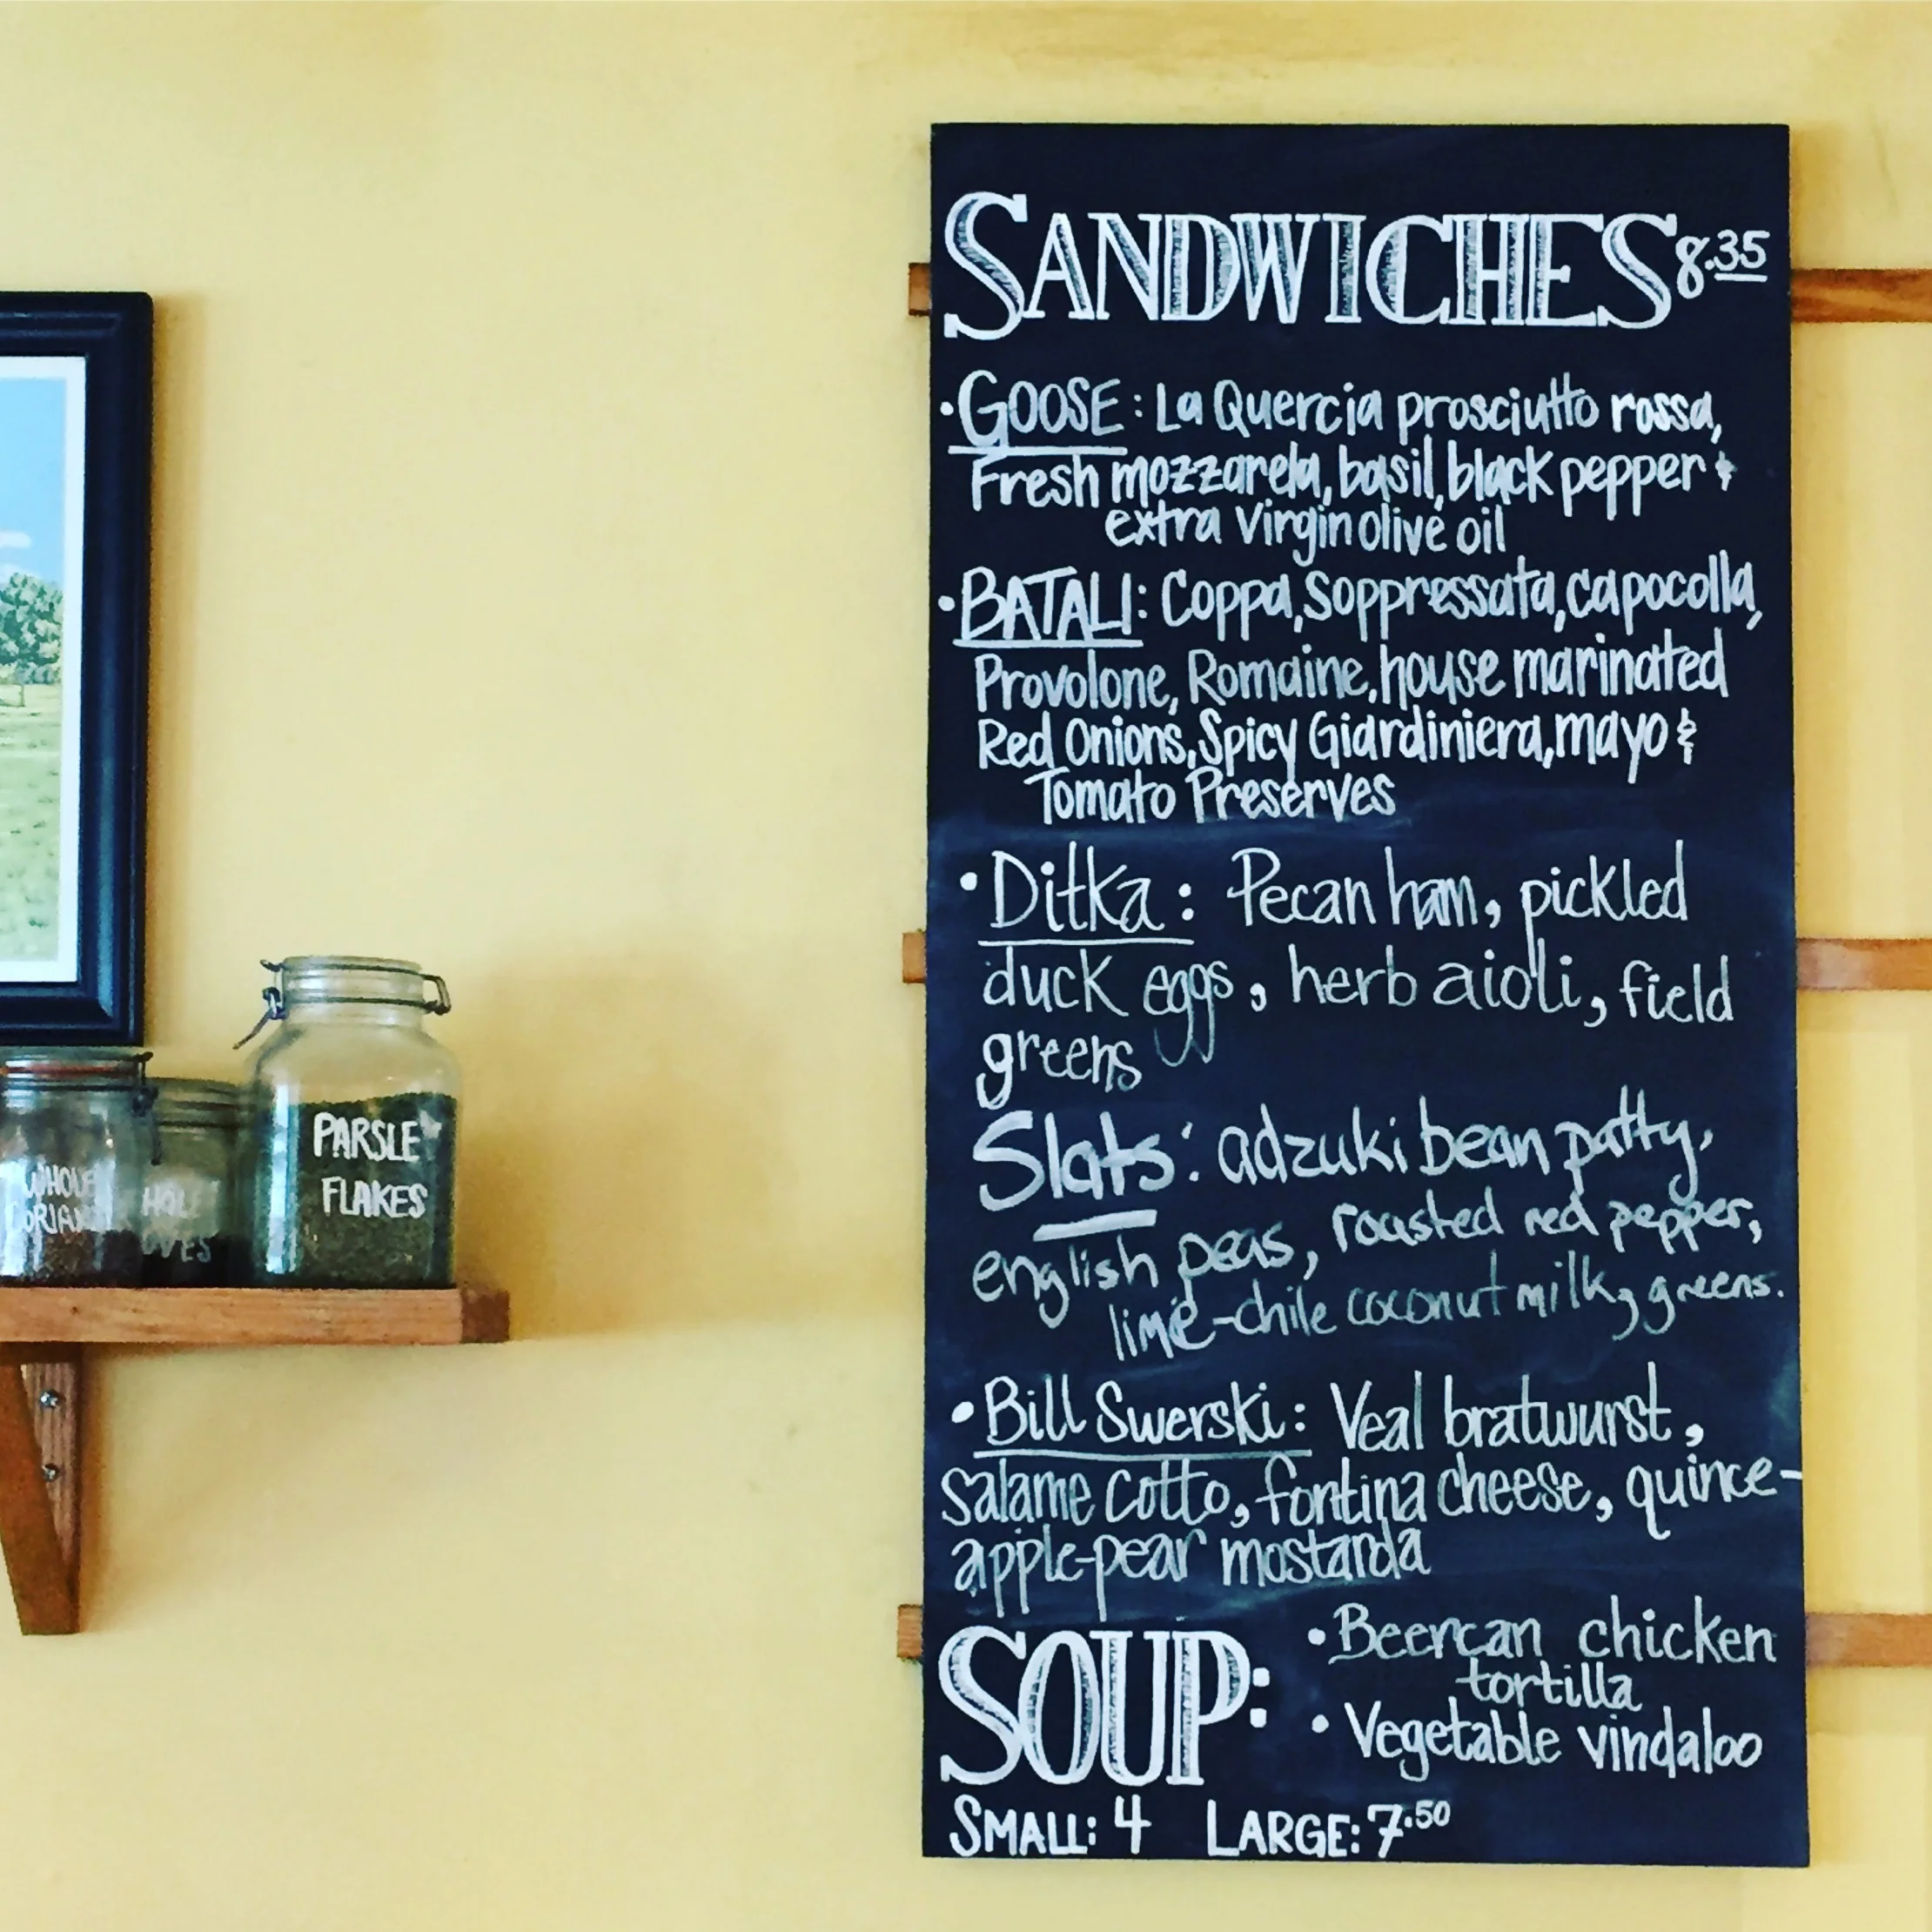 SANDWICHES 8.35
• GOOSE: La Quercia prosciutto rossa,
Fresh mozzarela, basil, black pepper &
extra Virgin olive oil
• BATALI: Coppa, Soppressata, capocolla,
Provolone, Romaine, house marinated
Red Onions, Spicy Giardiniera, mayo &
Tomato Preserves
• Ditka: Pecan ham, pickled
duck eggs, herb aioli, field
greens
Slats: adzuki bean patty,
english peas, roasted red pepper,
lime-chile coconut milk, greens.
• Bill Swerski: Veal bratwurst,
salame cotto, fontina cheese, quince-
apple-pear mostarda
SOUP:
• Beercan chicken
tortilla
• Vegetable vindaloo
SMALL: 4 LARGE: 7.50
PARSLEY
FLAKES
WHOLE